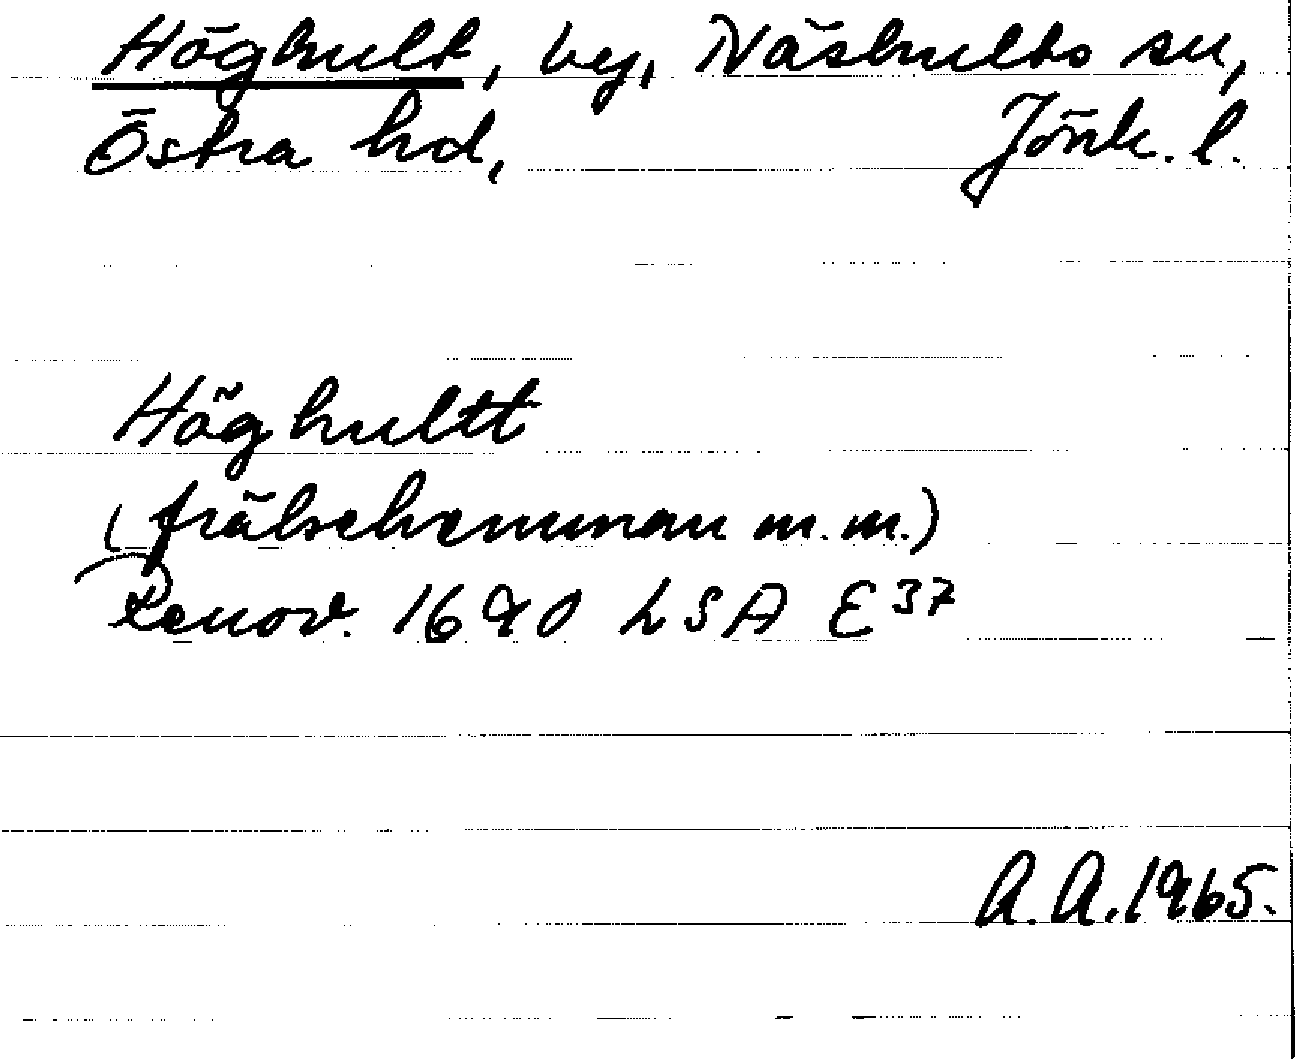 Höghult, by, Näshults sn,
Östra hd, Jönk. l.
Höghultt
(frälsehemman m.m.)
Renov. 1690 LSA E 37
A.A. 1965.